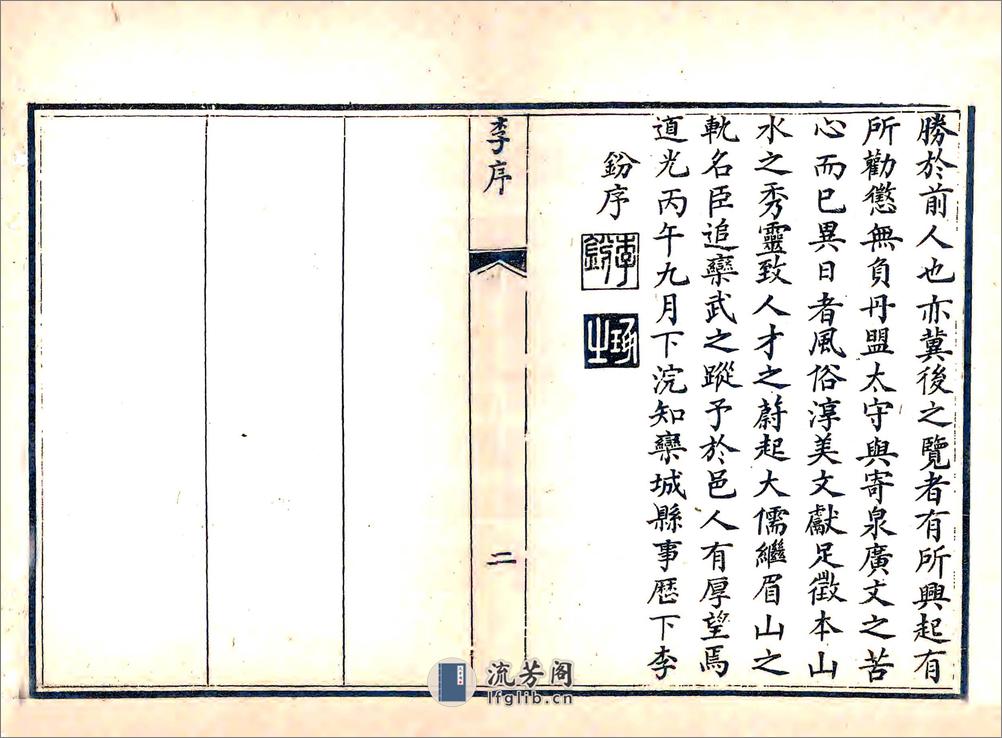 勝於前人也亦冀後之覽者有所興起有
所勸懲無負丹盟太守與寄泉廣文之苦
心而已異日者風俗淳美文獻足徵本山
水之秀靈致人才之蔚起大儒繼眉山之
軌名臣追欒武之蹤予於邑人有厚望焉
道光丙午九月下浣知欒城縣事歷下李
鈖序
李鈖
李序
二
流芳阁
lfglib.cn